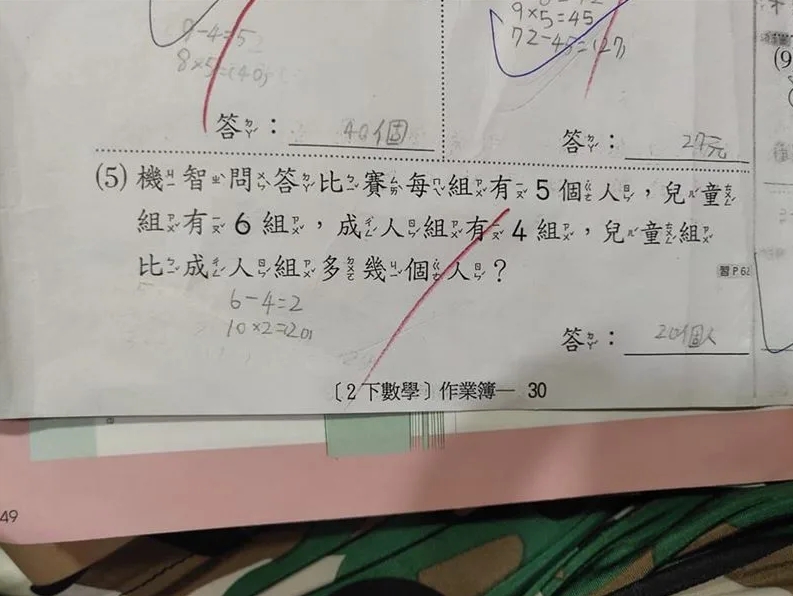 9-4=5
8×5=(40)
答：40個
9×5=45
72-45=(27)
答：27元
(5) 機智問答比賽每組有 5 個人，兒童
組有 6 組，成人組有 4 組，兒童組
比成人組多幾個人？
習P62
6-4=2
10×2=(20)
答：20個人
〔2下數學〕作業簿— 30
49